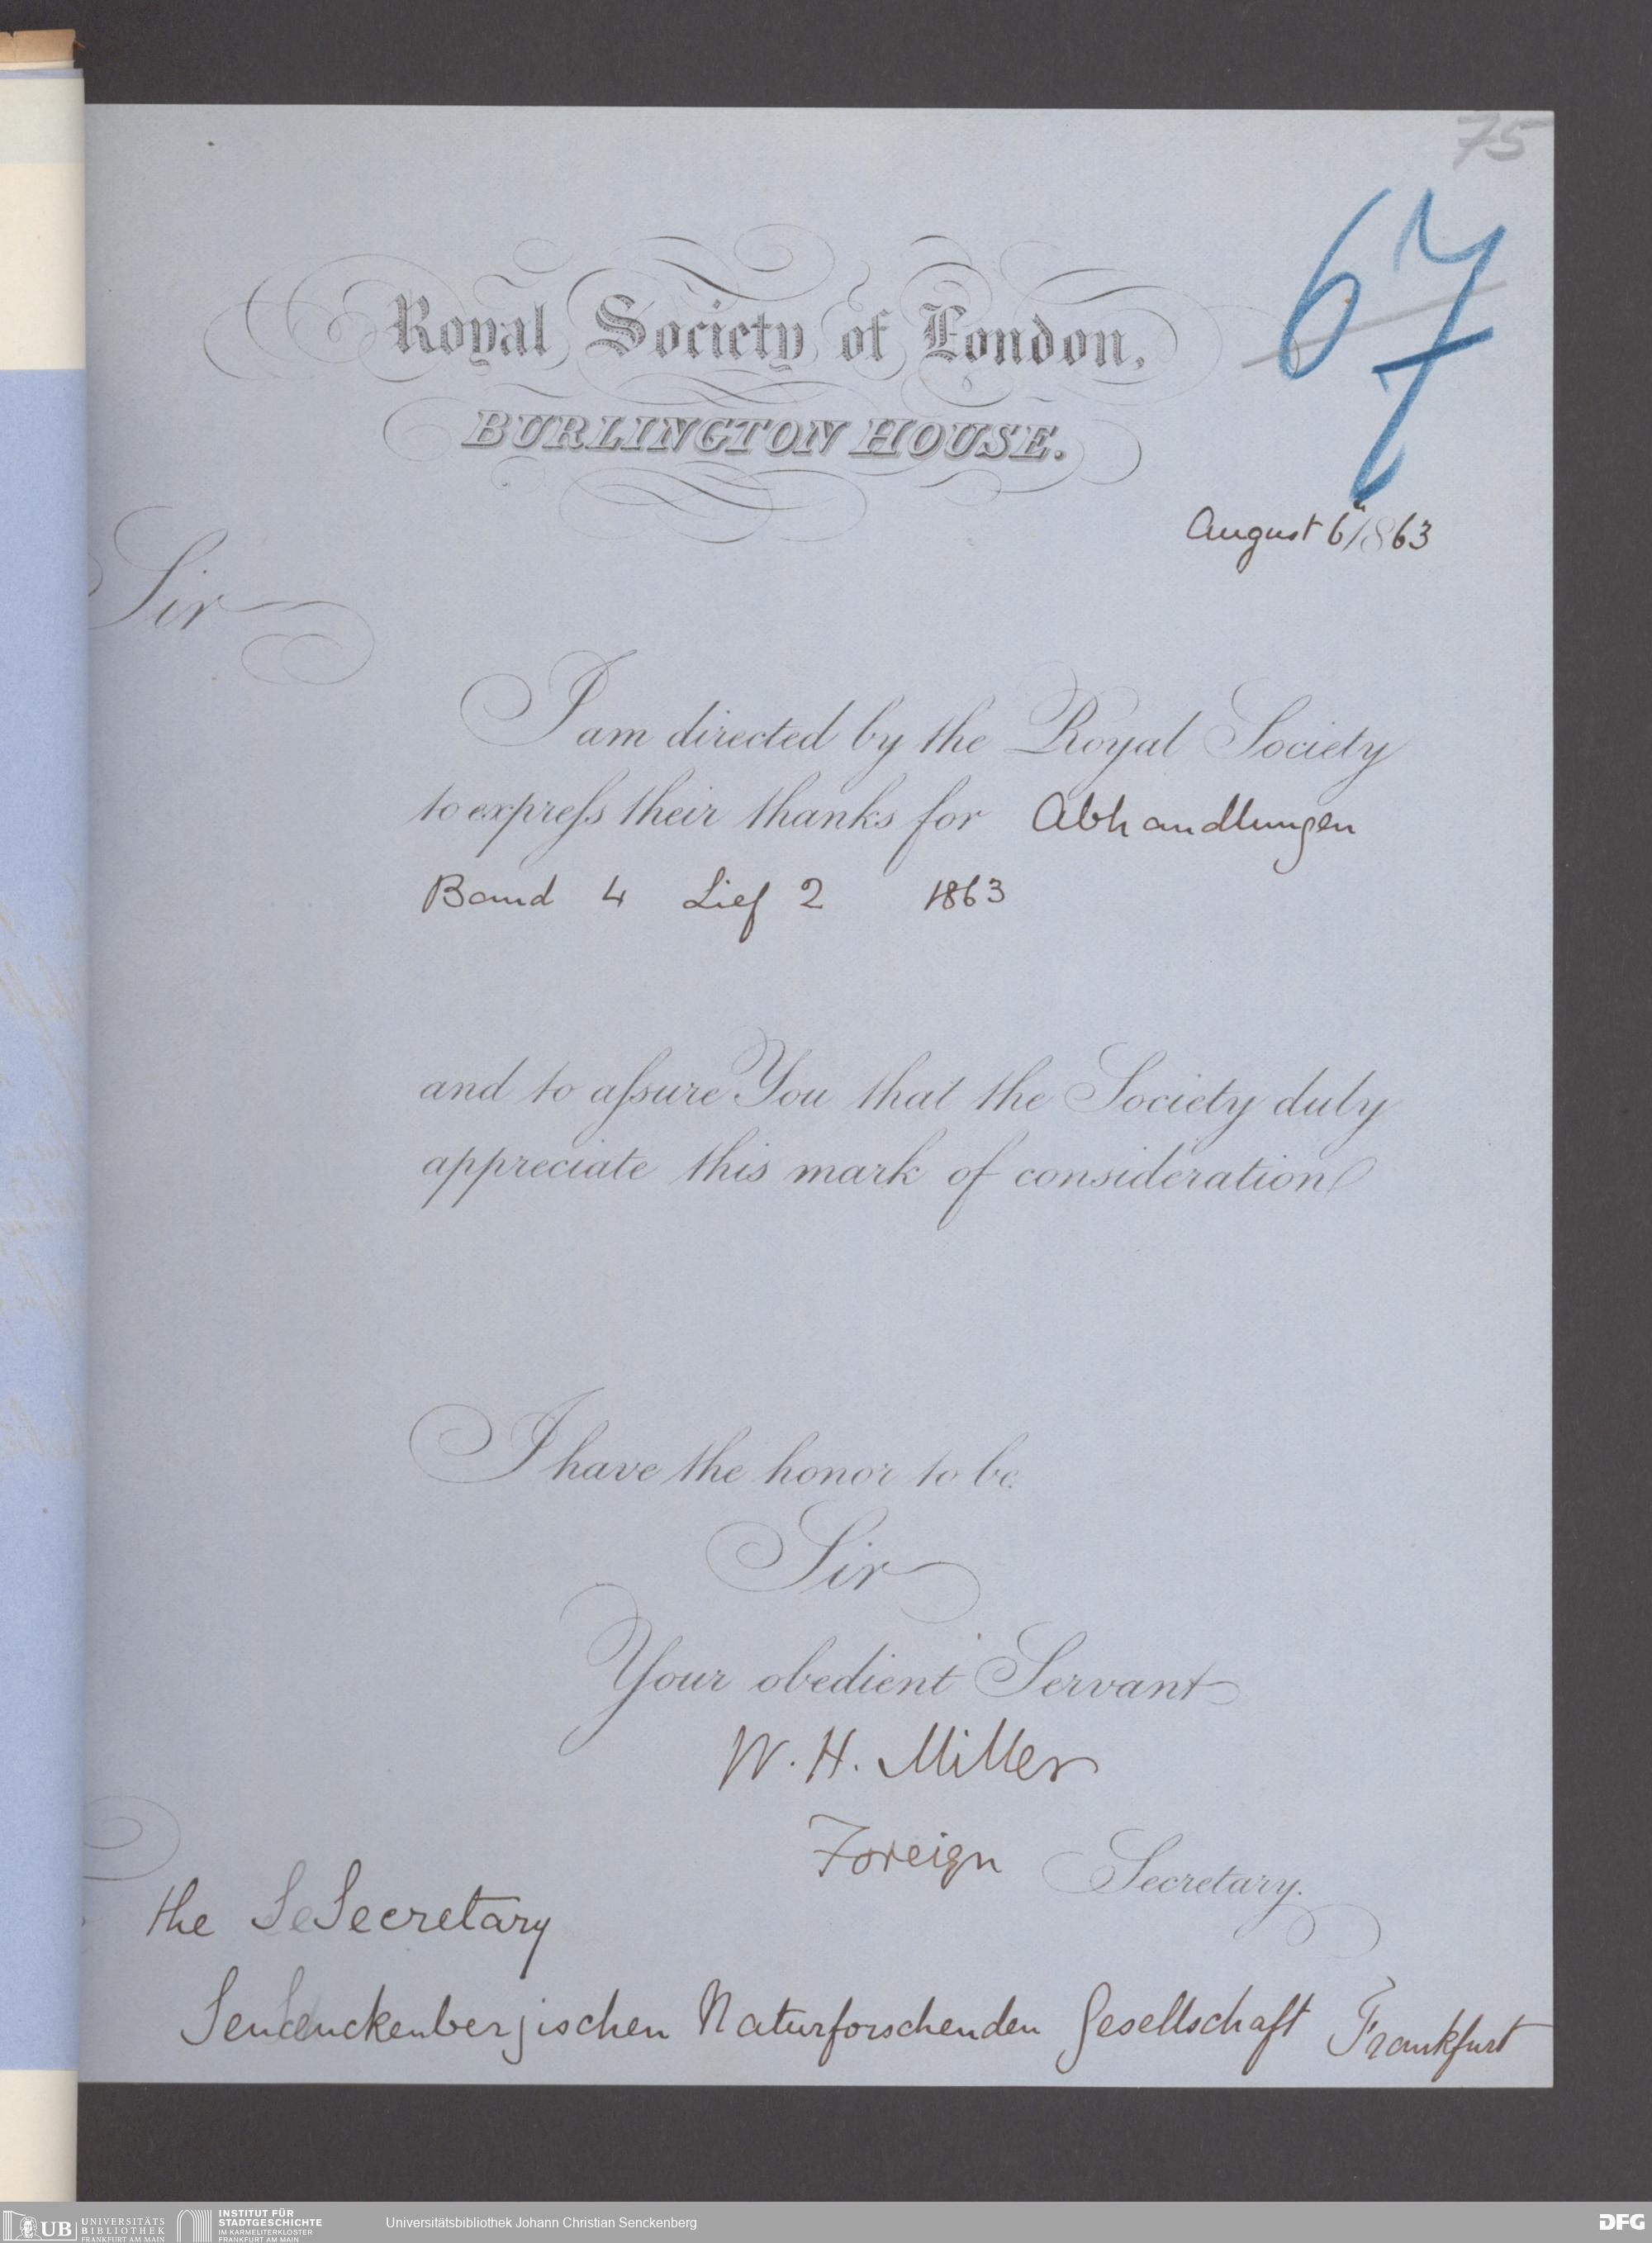 75
67
Royal Society of London,
BURLINGTON HOUSE.
August 6th 1863
Sir
I am directed by the Royal Society
to expreſs their thanks for Abhandlungen
Band 4 Lief 2 1863
and to aſsure You that the Society duly
appreciate this mark of consideration
I have the honor to be
Sir
Your obedient Servant
W. H. Miller
Foreign Secretary.
the Secretary
Senckenbergischen Naturforschenden Gesellschaft Frankfurt
UB UNIVERSITÄTS BIBLIOTHEK FRANKFURT AM MAIN
INSTITUT FÜR STADTGESCHICHTE IM KARMELITERKLOSTER FRANKFURT AM MAIN
Universitätsbibliothek Johann Christian Senckenberg
DFG